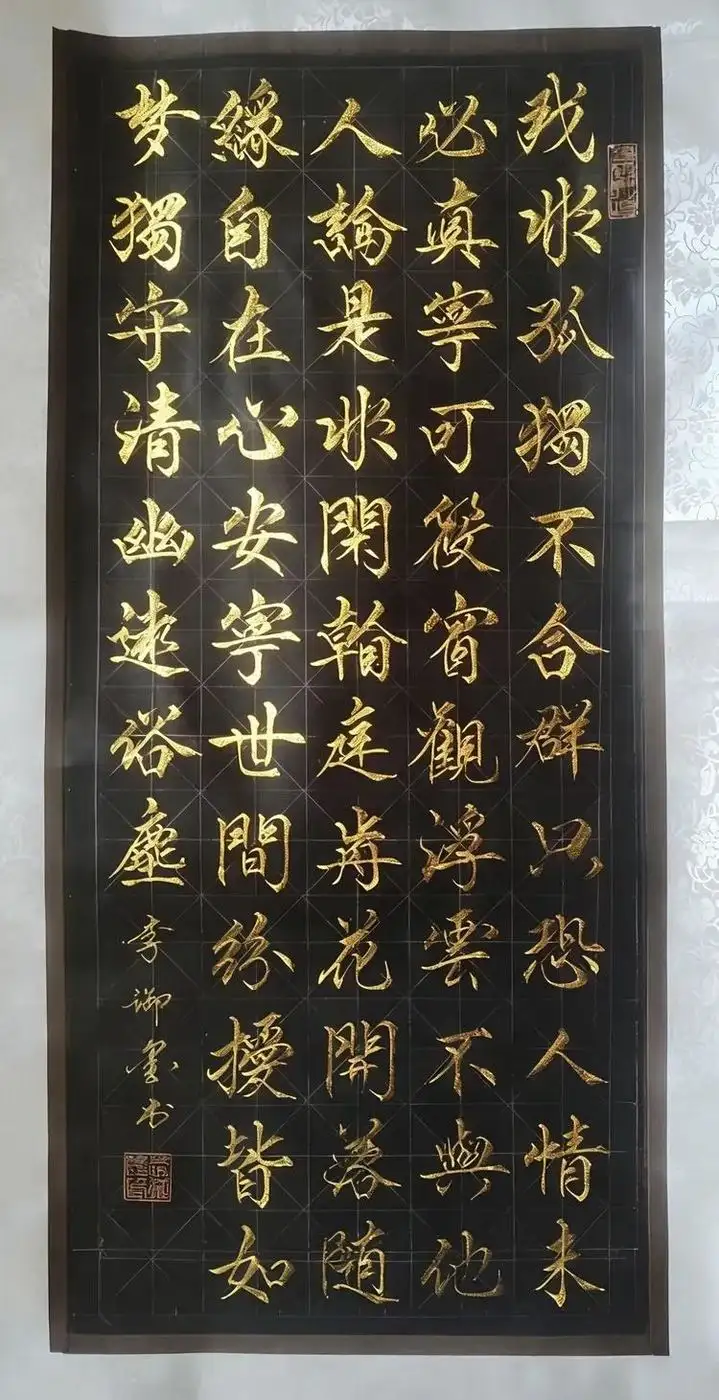 我非孤獨不合群只恐人情未
必真寧可筱窗觀浮雲不與他
人論是非閑看庭前花開落随
緣自在心安寧世間紛擾皆如
梦獨守清幽遠俗塵
李御墨书